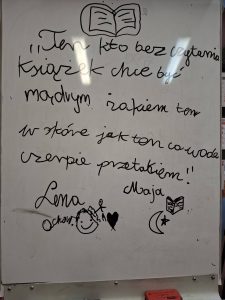 „Ten kto bez czytania
Książek chce być
mądrym żakiem ten
w istocie jak ten co wodę
czerpie przetakiem!”
Lena Maja
Ochou